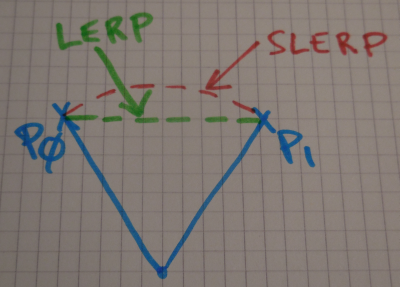 LERP
SLERP
PØ
P1